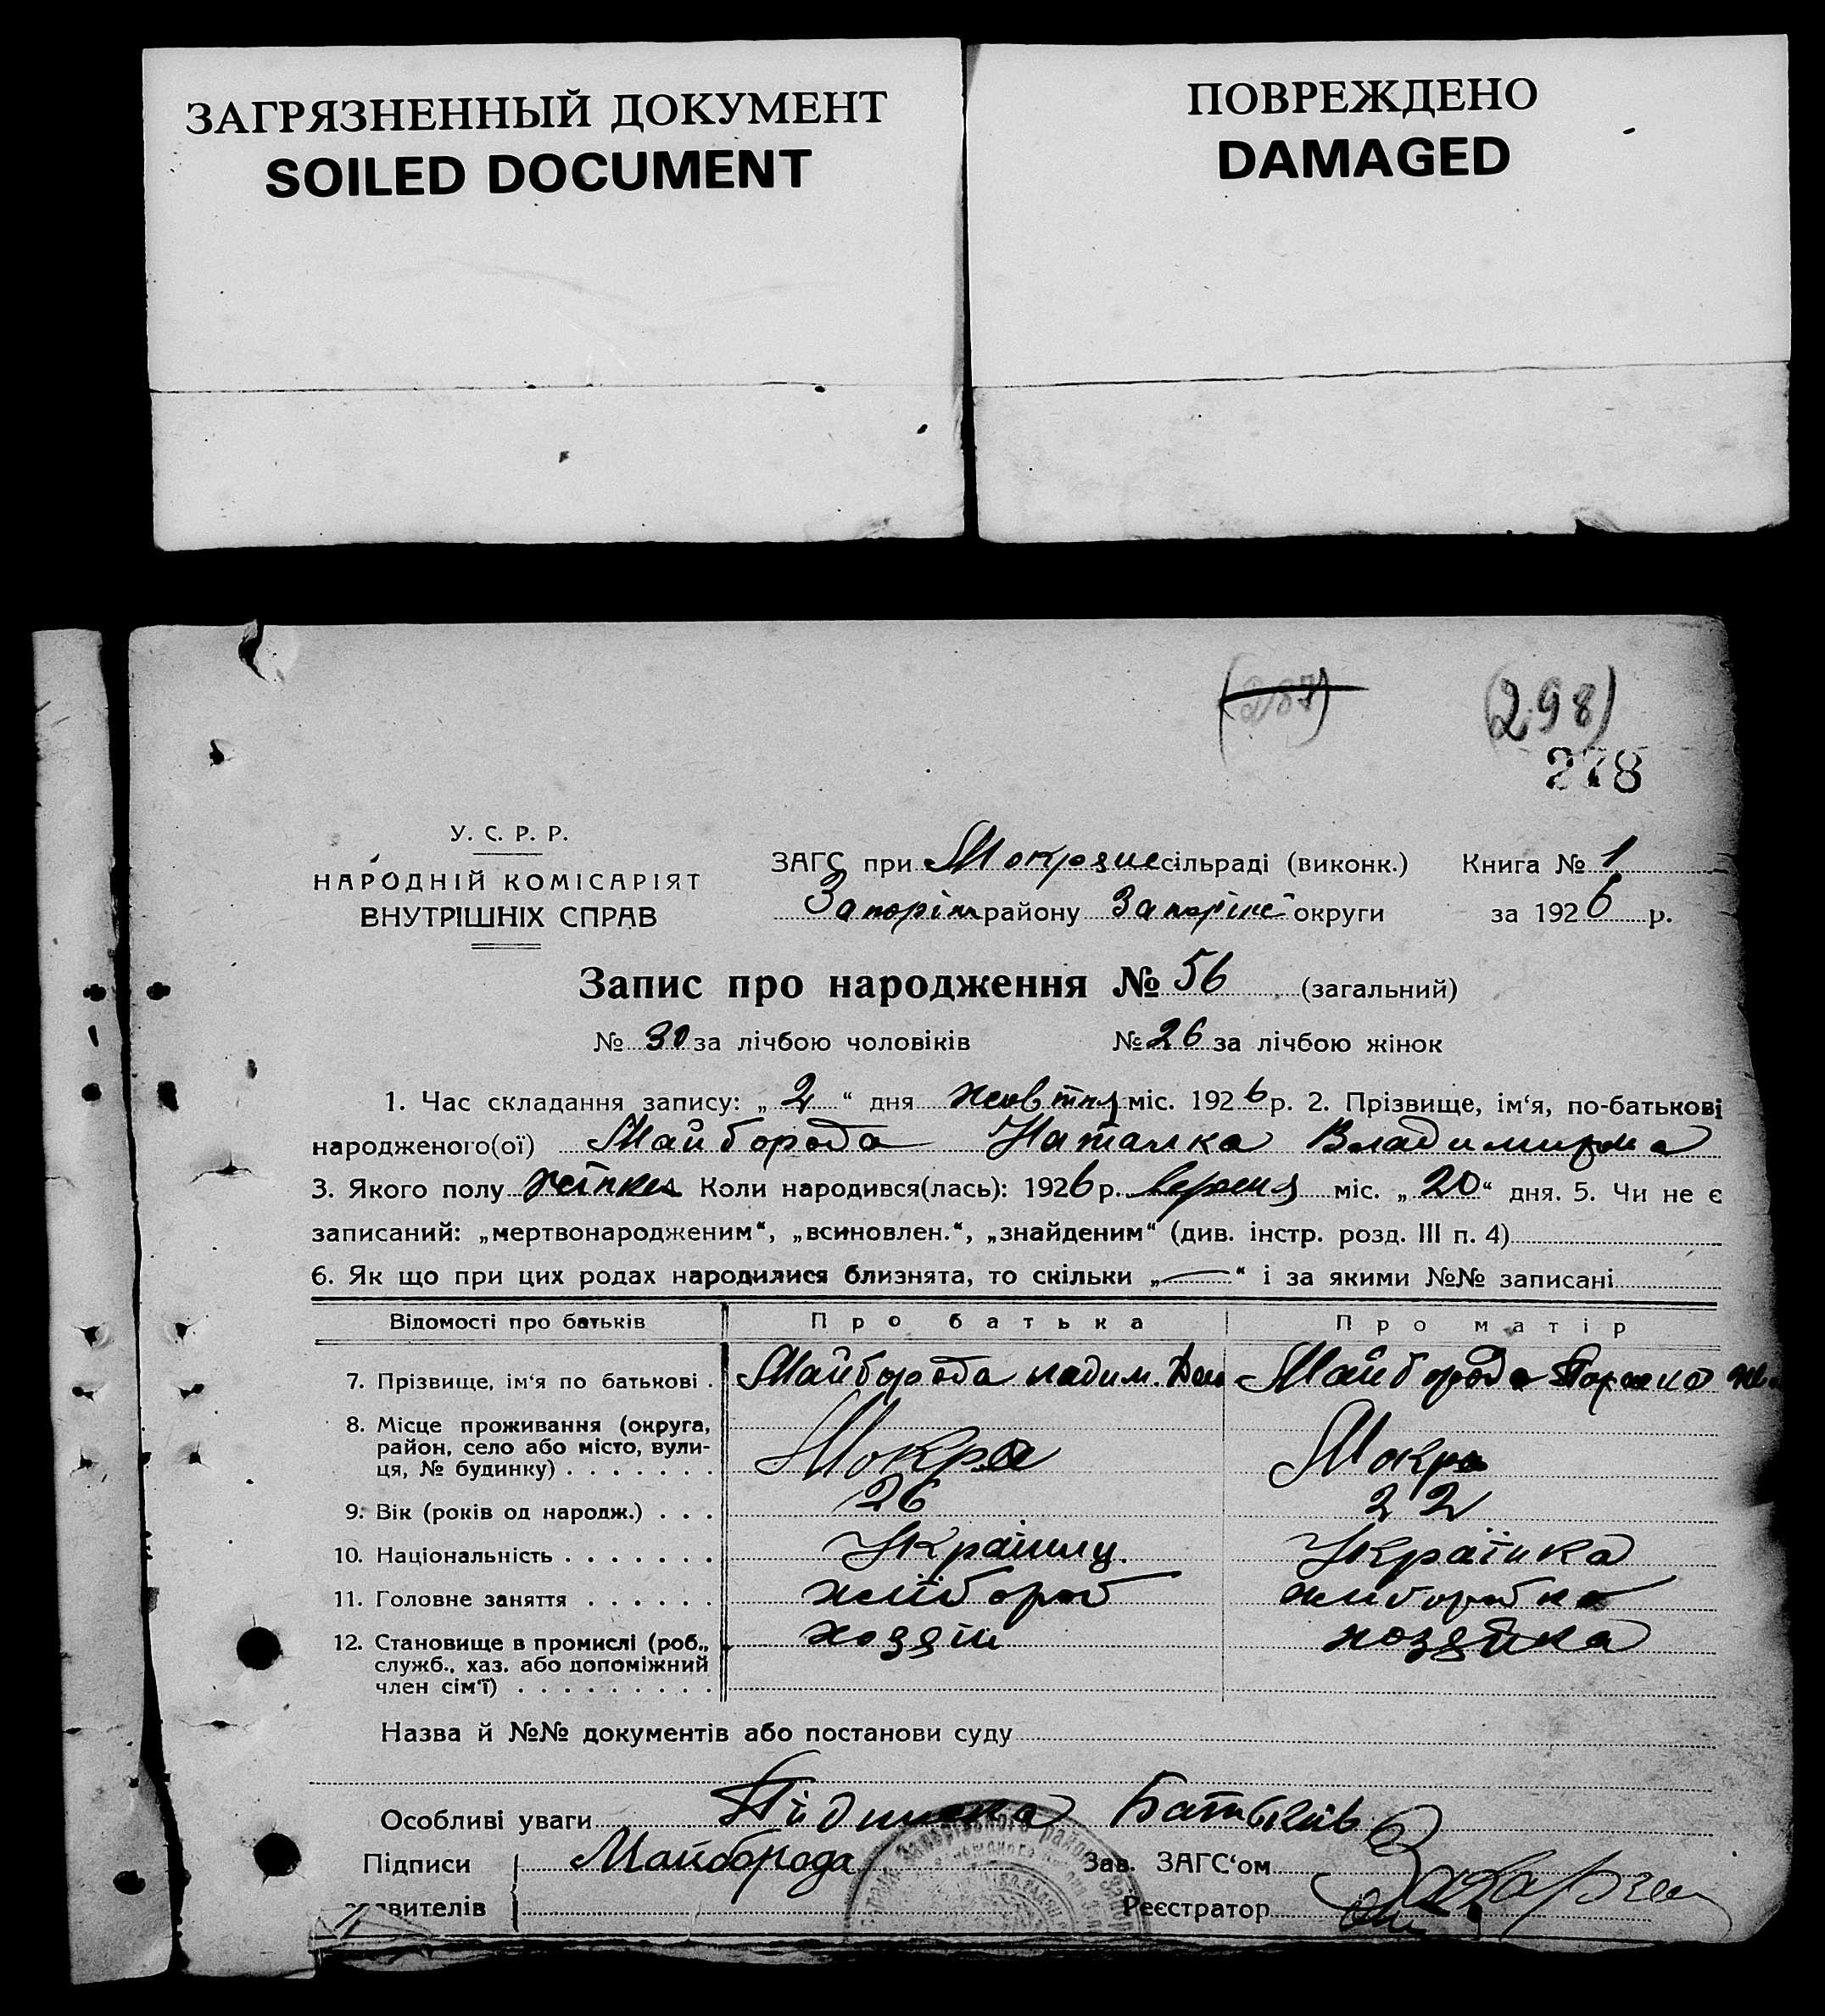 ЗАГРЯЗНЕННЫЙ ДОКУМЕНТ
SOILED DOCUMENT
ПОВРЕЖДЕНО
DAMAGED
(298)
278
У. С. Р. Р.
НАРОДНІЙ КОМІСАРІЯТ
ВНУТРІШНІХ СПРАВ
ЗАГС при сільраді (виконк.) Книга № 1
Запоріж району Запоріж округи за 1926 р.
Запис про народження № 56 (загальний)
№ 30 за лічбою чоловіків № 26 за лічбою жінок
1. Час складання запису: „ 2 “ дня жовтня міс. 1926 р. 2. Прізвище, ім‘я, по-батькові
народженого(ої) Майборода Наталка
3. Якого полу Коли народився(лась): 1926 р. міс. „ 20 “ дня. 5. Чи не є
записаний: „мертвонародженим“, „всиновлен.“, „знайденим“ (див. інстр. розд. III п. 4)
6. Як що при цих родах народилися близнята, то скільки „ — “ і за якими №№ записані
Відомості про батьків Про батька Про матір
7. Прізвище, ім‘я по батькові . Майборода Майборода
8. Місце проживання (округа,
район, село або місто, вули-
ця, № будинку) . . . . . . . Мокра Мокра
9. Вік (років од народж.) . . . 26 22
10. Національність . . . . . . . Українц. Українка
11. Головне заняття . . . . . . хлібороб
12. Становище в промислі (роб.,
служб., хаз. або допоміжний
член сім‘ї) . . . . . . . . . хозяїн хозяйка
Назва й №№ документів або постанови суду
Особливі уваги Підписка Батьків
Підписи Майборода Зав. ЗАГС‘ом
Реєстратор